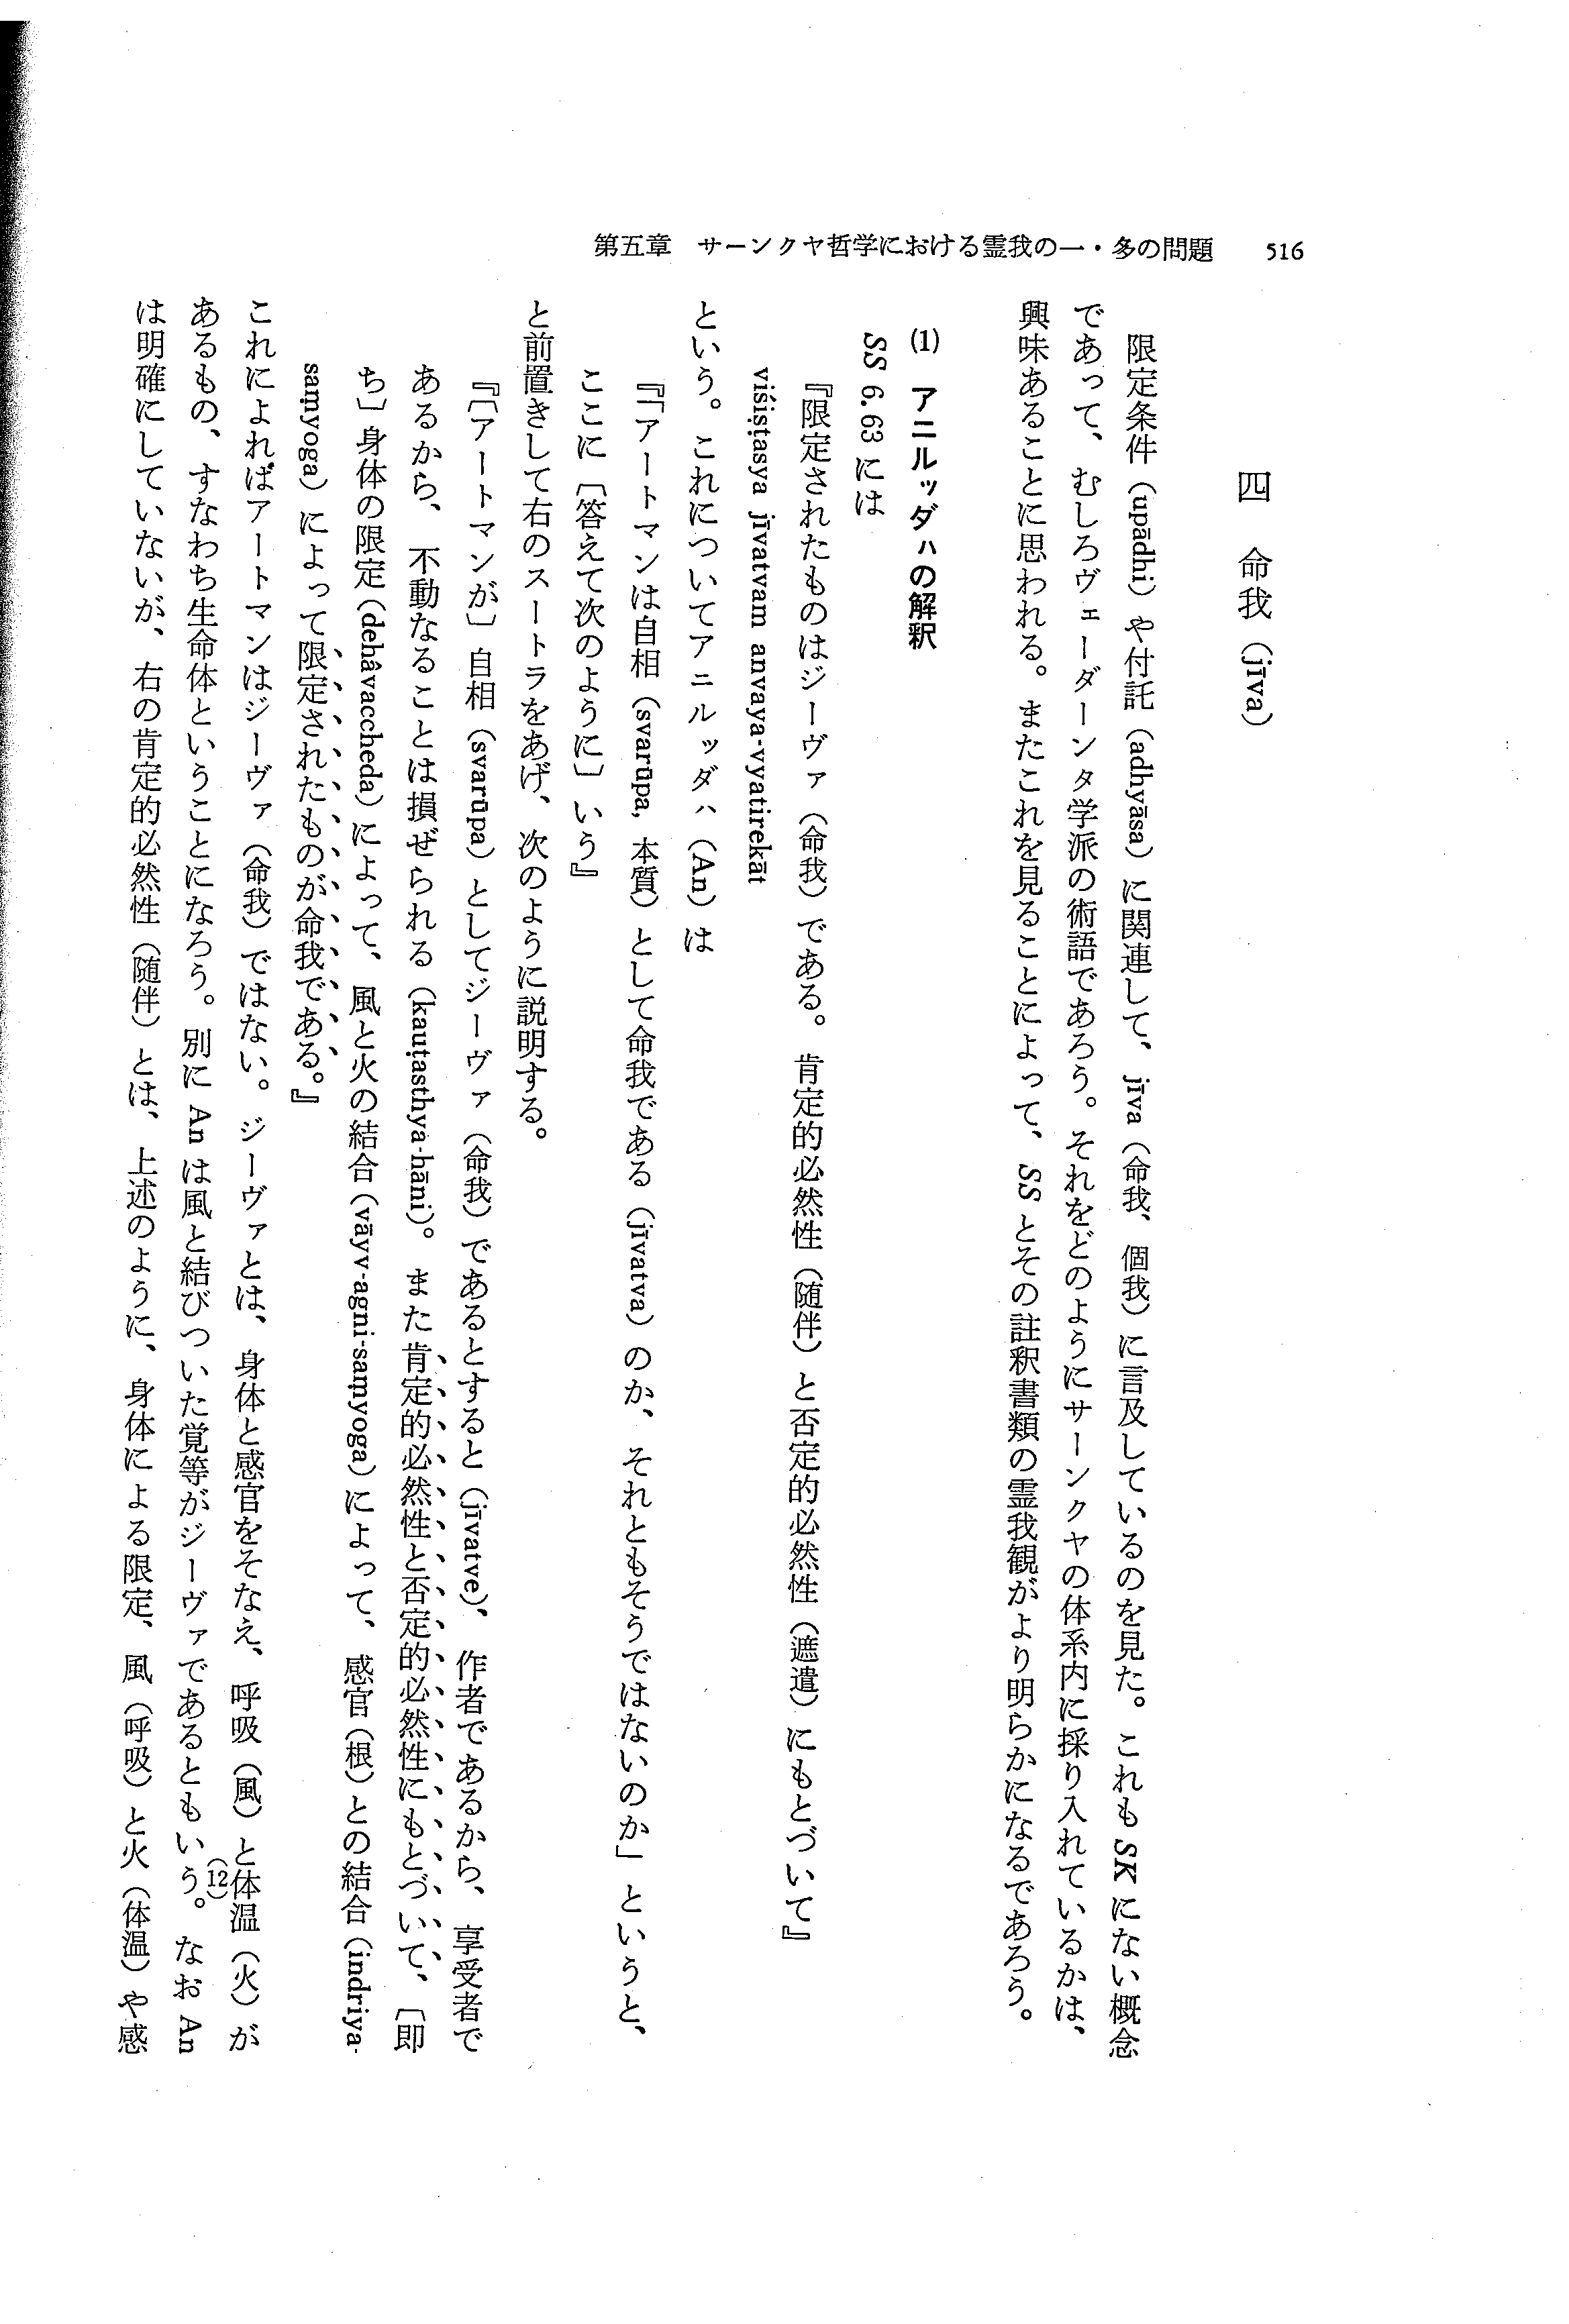 第五章　サーンクヤ哲学における霊我の一・多の問題　516
四　命我（jīva）
限定条件（upādhi）や付託（adhyāsa）に関連して、jīva（命我、個我）に言及しているのを見た。これも SK にない概念
であって、むしろヴェーダーンタ学派の術語であろう。それをどのようにサーンクヤの体系内に採り入れているかは、
興味あることに思われる。またこれを見ることによって、SS とその註釈書類の霊我観がより明らかになるであろう。
(1)　アニルッダハの解釈
SS 6.63 には
『限定されたものはジーヴァ（命我）である。肯定的必然性（随伴）と否定的必然性（遮遣）にもとづいて』
viśiṣṭasya jīvatvam anvaya-vyatirekāt
という。これについてアニルッダハ（An）は
『「アートマンは自相（svarūpa, 本質）として命我である（jīvatva）のか、それともそうではないのか」というと、
ここに〔答えて次のように〕いう』
と前置きして右のスートラをあげ、次のように説明する。
『〔アートマンが〕自相（svarūpa）としてジーヴァ（命我）であるとすると（jīvatve）、作者であるから、享受者で
あるから、不動なることは損ぜられる（kauṭasthya-hāni）。また肯定的必然性と否定的必然性にもとづいて、〔即
ち〕身体の限定（dehâvaccheda）によって、風と火の結合（vāyv-agni-saṃyoga）によって、感官（根）との結合（indriya-
saṃyoga）によって限定されたものが命我である。』
これによればアートマンはジーヴァ（命我）ではない。ジーヴァとは、身体と感官をそなえ、呼吸（風）と体温（火）が
あるもの、すなわち生命体ということになろう。別に An は風と結びついた覚等がジーヴァであるともいう。(12)なお An
は明確にしていないが、右の肯定的必然性（随伴）とは、上述のように、身体による限定、風（呼吸）と火（体温）や感